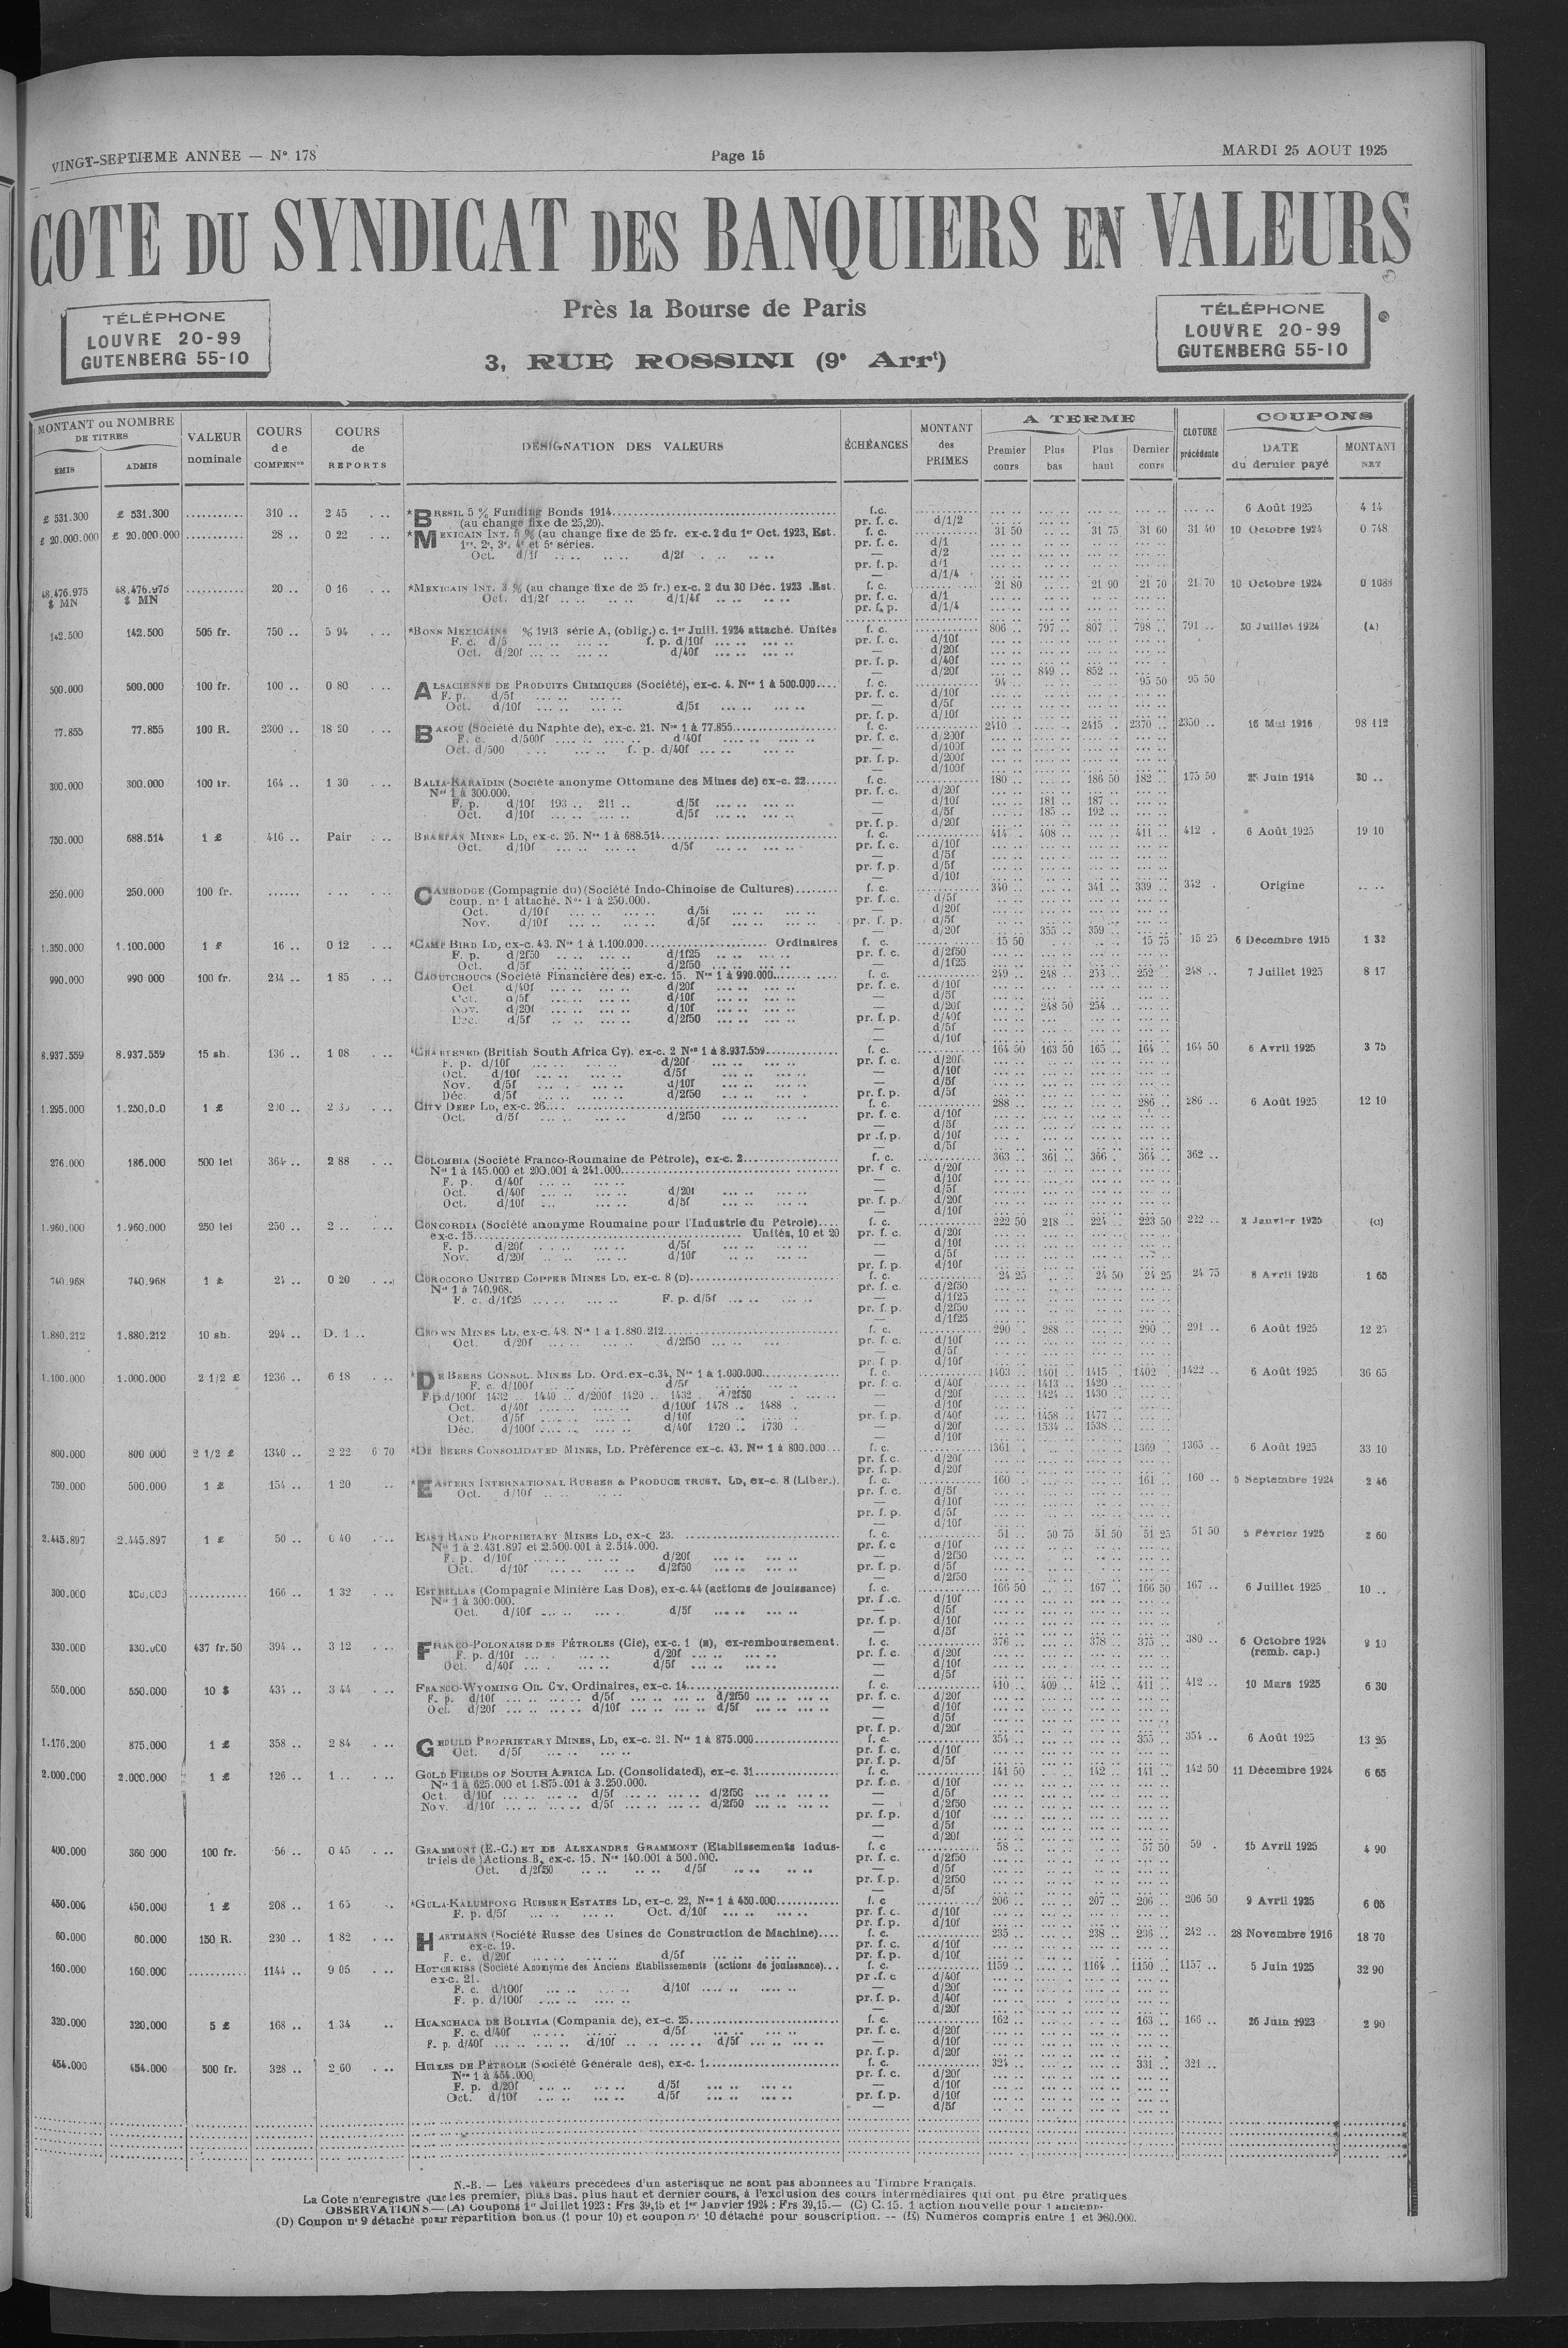 VINGT-SEPTIEME ANNEE — N° 178
Page 15
MARDI 25 AOUT 1925
COTE DU SYNDICAT DES BANQUIERS EN VALEURS
Près la Bourse de Paris
3, RUE ROSSINI (9e Arrt)
TÉLÉPHONE
LOUVRE 20-99
GUTENBERG 55-10
TÉLÉPHONE
LOUVRE 20-99
GUTENBERG 55-10
MONTANT ou NOMBRE DE TITRES
EMIS ADMIS
VALEUR nominale
COURS de COMPENon
COURS de REPORTS
DESIGNATION DES VALEURS
ÉCHÉANCES
MONTANT des PRIMES
A TERME
Premier cours Plus bas Plus haut Dernier cours
CLOTURE précédente
COUPONS
DATE du dernier payé
MONTANT NET
£ 531.300 £ 531.300 ........... 310 .. 2 45 *BRESIL 5 % Funding Bonds 1914 f.c. 6 Août 1925 4 14
(au change fixe de 25,20). pr. f. c. d/1/2
£ 20.000.000 £ 20.000.000 ........... 28 .. 0 22 *MEXICAIN INT. 5 % (au change fixe de 25 fr. ex-c. 2 du 1er Oct. 1923, Est. f. c. 31 50 31 75 31 60 31 40 10 Octobre 1924 0 748
1re, 2e, 3e, 4e et 5e séries. pr. f. c. d/1
Oct. d/1f d/2f — d/2
pr. f. p. d/1
— d/1/4
48.476.975 $ MN 48.476.975 $ MN ........... 20 .. 0 16 *MEXICAIN INT. 3 % (au change fixe de 25 fr.) ex-c. 2 du 30 Déc. 1923 Est. f. c. 21 80 21 90 21 70 21 70 10 Octobre 1924 0 1088
Oct. d1/2f d/1/4f pr. f. c. d/1
pr. f. p. d/1/4
142.500 142.500 505 fr. 750 .. 5 94 *BONS MEXICAINS % 1913 série A, (oblig.) c. 1er Juill. 1924 attaché. Unités f. c. 806 .. 797 .. 807 .. 798 .. 791 .. 30 Juillet 1924 (A)
F. c. d/5 f. p. d/10f pr. f. c. d/10f
Oct. d/20f d/40f — d/20f
pr. f. p. d/40f
— d/20f 849 .. 852 ..
500.000 500.000 100 fr. 100 .. 0 80 ALSACIENNE DE PRODUITS CHIMIQUES (Société), ex-c. 4. Nos 1 à 500.000 f. c. 94 95 50 95 50
F. p. d/5f pr. f. c. d/10f
Oct. d/10f d/5f — d/5f
pr. f. p. d/10f
77.855 77.855 100 R. 2300 .. 18 20 BAKOU (Société du Naphte de), ex-c. 21. Nos 1 à 77.855 f. c. 2410 .. 2415 .. 2370 .. 2350 .. 16 Mai 1916 98 112
F. c. d/500f d/40f pr. f. c. d/200f
Oct. d/500 f. p. d/40f — d/100f
pr. f. p. d/200f
— d/100f
300.000 300.000 100 fr. 164 .. 1 30 BALIA-KARAÏDIN (Société anonyme Ottomane des Mines de) ex-c. 22 f. c. 180 .. 186 50 182 .. 175 50 25 Juin 1914 30 ..
Nos 1 à 300.000. pr. f. c. d/20f
F. p. d/10f 193 .. 211 .. d/5f — d/10f 181 .. 187 ..
Oct. d/10f d/5f — d/5f 185 .. 192 ..
pr. f. p. d/20f
750.000 688.514 1 £ 416 .. Pair BRAKPAN MINES LD, ex-c. 26. Nos 1 à 688.514 f. c. 414 .. 408 .. 411 .. 412 . 6 Août 1925 19 10
Oct. d/10f d/5f pr. f. c. d/10f
— d/5f
pr. f. p. d/5f
— d/10f
250.000 250.000 100 fr. CAMBODGE (Compagnie du) (Société Indo-Chinoise de Cultures) f. c. 340 .. 341 .. 339 .. 342 . Origine
coup. n° 1 attaché. Nos 1 à 250.000. pr. f. c. d/5f
Oct. d/10f d/5f — d/20f
Nov. d/10f d/5f pr. f. p. d/5f
— d/20f 355 .. 359 ..
1.350.000 1.100.000 1 £ 16 .. 0 12 *CAMP BIRD LD, ex-c. 43. Nos 1 à 1.100.000 Ordinaires f. c. 15 50 15 75 15 25 6 Décembre 1915 1 32
F. p. d/2f50 d/1f25 pr. f. c. d/2f50
Oct. d/5f d/2f50 — d/1f25
990.000 990.000 100 fr. 234 .. 1 85 CAOUTCHOUCS (Société Financière des) ex-c. 15. Nos 1 à 990.000 f. c. 249 .. 248 .. 253 .. 252 .. 248 .. 7 Juillet 1925 8 17
Oct d/40f d/20f pr. f. c. d/10f
Oct. d/5f d/10f — d/5f
Nov. d/20f d/10f — d/20f 248 50 254 ..
Déc. d/5f d/2f50 pr. f. p. d/40f
— d/5f
— d/10f
8.937.559 8.937.559 15 sh. 136 .. 1 08 *CHARTERED (British South Africa Cy). ex-c. 2 Nos 1 à 8.937.559 f. c. 164 50 163 50 165 .. 164 .. 164 50 6 Avril 1925 3 75
F. p. d/10f d/20f pr. f. c. d/20f
Oct. d/10f d/5f — d/10f
Nov. d/5f d/10f — d/5f
Déc. d/5f d/2f50 pr. f. p. d/5f
1.295.000 1 £ CITY DEEP LD, ex-c. 26 f. c. 288 .. 286 .. 286 .. 6 Août 1925 12 10
Oct. d/5f d/2f50 pr. f. c. d/10f
— d/5f
pr. f. p. d/10f
— d/5f
276.000 186.000 500 lei 364 .. 2 88 COLOMBIA (Société Franco-Roumaine de Pétrole), ex-c. 2 f. c. 363 .. 361 .. 366 .. 364 .. 362 ..
Nos 1 à 145.000 et 200.001 à 241.000 pr. f c. d/20f
F. p. d/40f — d/10f
Oct. d/40f d/20f — d/5f
Oct. d/10f d/5f pr. f. p. d/20f
— d/10f
1.960.000 1.960.000 250 lei 250 .. 2 .. CONCORDIA (Société anonyme Roumaine pour l'Industrie du Pétrole) f. c. 222 50 218 .. 224 .. 223 50 222 .. 2 Janvier 1925 (C)
ex-c. 15 Unités, 10 et 20 pr. f. c. d/20f
F. p. d/20f d/5f — d/10f
Nov. d/20f d/10f — d/5f
pr. f. p. d/10f
740.968 740.968 1 £ 24 .. 0 20 COROCORO UNITED COPPER MINES LD, ex-c. 8 (D) f. c. 24 25 24 50 24 25 24 75 8 Avril 1920 1 65
Nos 1 à 740.968. pr. f. c. d/2f50
F. c. d/1f25 F. p. d/5f — d/1f25
pr. f. p. d/2f50
— d/1f25
1.880.212 1.880.212 10 sh. 294 .. D. 1 .. CROWN MINES LD, ex-c. 48. Nos 1 à 1.880.212 f. c. 290 . 288 .. 290 .. 291 .. 6 Août 1925 12 25
Oct. d/20f d/2f50 pr. f. c. d/10f
— d/5f
pr. f. p. d/10f
1.100.000 1.000.000 2 1/2 £ 1236 .. 6 18 *DE BEERS CONSOL. MINES LD. Ord. ex-c. 34, Nos 1 à 1.000.000 f. c. 1403 .. 1401 .. 1415 .. 1402 .. 1422 .. 6 Août 1925 36 65
F. c. d/100f d/5f pr. f. c. d/40f 1413 .. 1420 ..
F.p.d/100f 1432 .. 1440 .. d/200f 1420 .. 1432 . d/2f50 — d/20f 1424 .. 1430 ..
Oct. d/40f d/100f 1478 .. 1488 . — d/10f
Oct. d/5f d/10f pr. f. p. d/40f 1458 .. 1477 ..
Déc. d/100f d/40f 1720 .. 1730 . — d/20f 1534 .. 1538 ..
— d/10f
800.000 800.000 2 1/2 £ 1340 .. 2 22 6 70 *DE BEERS CONSOLIDATED MINES, LD. Préférence ex-c. 43. Nos 1 à 800.000 f. c. 1361 . 1369 .. 1365 .. 6 Août 1925 33 10
pr. f. c. d/20f
pr. f. p. d/20f
750.000 500.000 1 £ 154 .. 1 20 *EASTERN INTERNATIONAL RUBBER & PRODUCE TRUST, LD, ex-c. 8 (Liber.) f. c. 160 .. 161 .. 160 .. 5 Septembre 1924 2 46
Oct. d/10f pr. f. c. d/5f
— d/10f
pr. f. p. d/5f
— d/10f
2.445.897 2.445.897 1 £ 50 .. 0 40 EAST RAND PROPRIETARY MINES LD, ex-c 23. f. c. 51 .. 50 75 51 50 51 25 51 50 5 Février 1925 2 60
Nos 1 à 2.431.897 et 2.500.001 à 2.514.000. pr. f. c d/10f
F. p. d/10f d/20f — d/2f50
Oct. d/10f d/2f50 pr. f. p. d/5f
— d/2f50
300.000 300.000 ........... 166 .. 1 32 ESTRELLAS (Compagnie Minière Las Dos), ex-c. 44 (actions de jouissance) f. c. 166 50 167 .. 166 50 167 .. 6 Juillet 1925 10 ..
Nos 1 à 300.000. pr. f .c. d/10f
Oct. d/10f d/5f — d/5f
pr. f. p. d/10f
— d/5f
330.000 330.000 437 fr. 50 394 .. 3 12 FRANCO-POLONAISE DES PÉTROLES (Cie), ex-c. 1 (E), ex-remboursement. f. c. 376 .. 378 .. 375 .. 380 .. 6 Octobre 1924 9 10
F. p. d/10f d/20f pr. f. c. d/20f (remb. cap.)
Oct. d/40f d/5f — d/10f
— d/5f
550.000 550.000 10 $ 431 .. 3 44 FRANCO-WYOMING OIL CY, Ordinaires, ex-c. 14 f. c. 410 .. 409 .. 412 .. 411 .. 412 .. 10 Mars 1925 6 30
F. p. d/10f d/5f d/2f50 pr. f. c. d/20f
Oct. d/20f d/10f d/5f — d/10f
— d/5f
pr. f. p. d/20f
1.176.200 875.000 1 £ 358 .. 2 84 GEDULD PROPRIETARY MINES, LD, ex-c. 21. Nos 1 à 875.000 f. c. 354 .. 355 .. 354 .. 6 Août 1925 13 25
Oct. d/5f pr. f. c. d/10f
pr. f. p. d/5f
2.000.000 2.000.000 1 £ 126 .. 1 .. GOLD FIELDS OF SOUTH AFRICA LD. (Consolidated), ex-c. 31 f. c. 141 50 142 .. 141 .. 142 50 11 Décembre 1924 6 65
Nos 1 à 625.000 et 1.875.001 à 3.250.000. pr. f. c. d/10f
Oct. d/10f d/5f d/2f50 — d/5f
Nov. d/10f d/5f d/2f50 — d/2f50
pr. f. p. d/10f
— d/5f
— d/20f
400.000 360.000 100 fr. 56 .. 0 45 GRAMMONT (E.-C.) ET DE ALEXANDRE GRAMMONT (Etablissements indus- f. c 58 .. 57 50 59 . 15 Avril 1925 4 90
triels de) Actions B, ex-c. 15. Nos 140.001 à 500.000. pr. f. c. d/2f50
Oct. d/2f50 d/5f — d/5f
pr. f. p. d/2f50
— d/5f
450.006 450.000 1 £ 208 .. 1 65 *GULA-KALUMPONG RUBBER ESTATES LD, ex-c. 22, Nos 1 à 450.000 f. c 206 .. 207 .. 206 .. 206 50 9 Avril 1925 6 05
F. p. d/5f Oct. d/10f pr. f. c. d/10f
pr. f. p. d/10f
60.000 60.000 150 R. 230 .. 1 82 HARTMANN (Société Russe des Usines de Construction de Machine) f. c. 235 .. 238 .. 236 .. 242 .. 28 Novembre 1916 18 70
ex-c. 19. pr. f. c. d/10f
F. c. d/20f d/5f pr. f. p. d/10f
160.000 160.000 ........... 1144 .. 9 05 HOTCHKISS (Société Anonyme des Anciens Etablissements (actions de jouissance) f. c. 1159 .. 1164 .. 1150 .. 1157 .. 5 Juin 1925 32 90
ex-c. 21. pr .f. c d/40f
F. c. d/100f d/10f — d/20f
F. p. d/100f pr. f. p. d/40f
— d/20f
320.000 320.000 5 £ 168 .. 1.34 HUANCHACA DE BOLIVIA (Compania de), ex-c. 25 f. c. 162 .. 163 .. 166 .. 26 Juin 1923 2 90
F. c. d/40f d/5f pr. f. c. d/20f
F. p. d/40f d/10f d/5f — d/10f
pr. f. p. d/20f
454.000 454.000 500 fr. 328 .. 2 60 HUILES DE PETROLE (Société Générale des), ex-c. 1 f. c. 324 .. 331 .. 321 ..
Nos 1 à 454.000. pr. f. c. d/20f
F. p. d/20f d/5f — d/10f
Oct. d/10f d/5f pr. f. p. d/10f
— d/5f
N.-B. — Les valeurs précédées d'un astérisque ne sont pas abonnées au Timbre Français.
La Cote n'enregistre que les premier, plus bas, plus haut et dernier cours, à l'exclusion des cours intermédiaires qui ont pu être pratiqués
OBSERVATIONS — (A) Coupons 1er Juillet 1923 : Frs 39,15 et 1er Janvier 1924 : Frs 39,15.— (C) C. 15. 1 action nouvelle pour 1 ancienne.
(D) Coupon n° 9 détaché pour répartition bonus (1 pour 10) et coupon n° 10 détaché pour souscription. -- (E) Numéros compris entre 1 et 360.000.